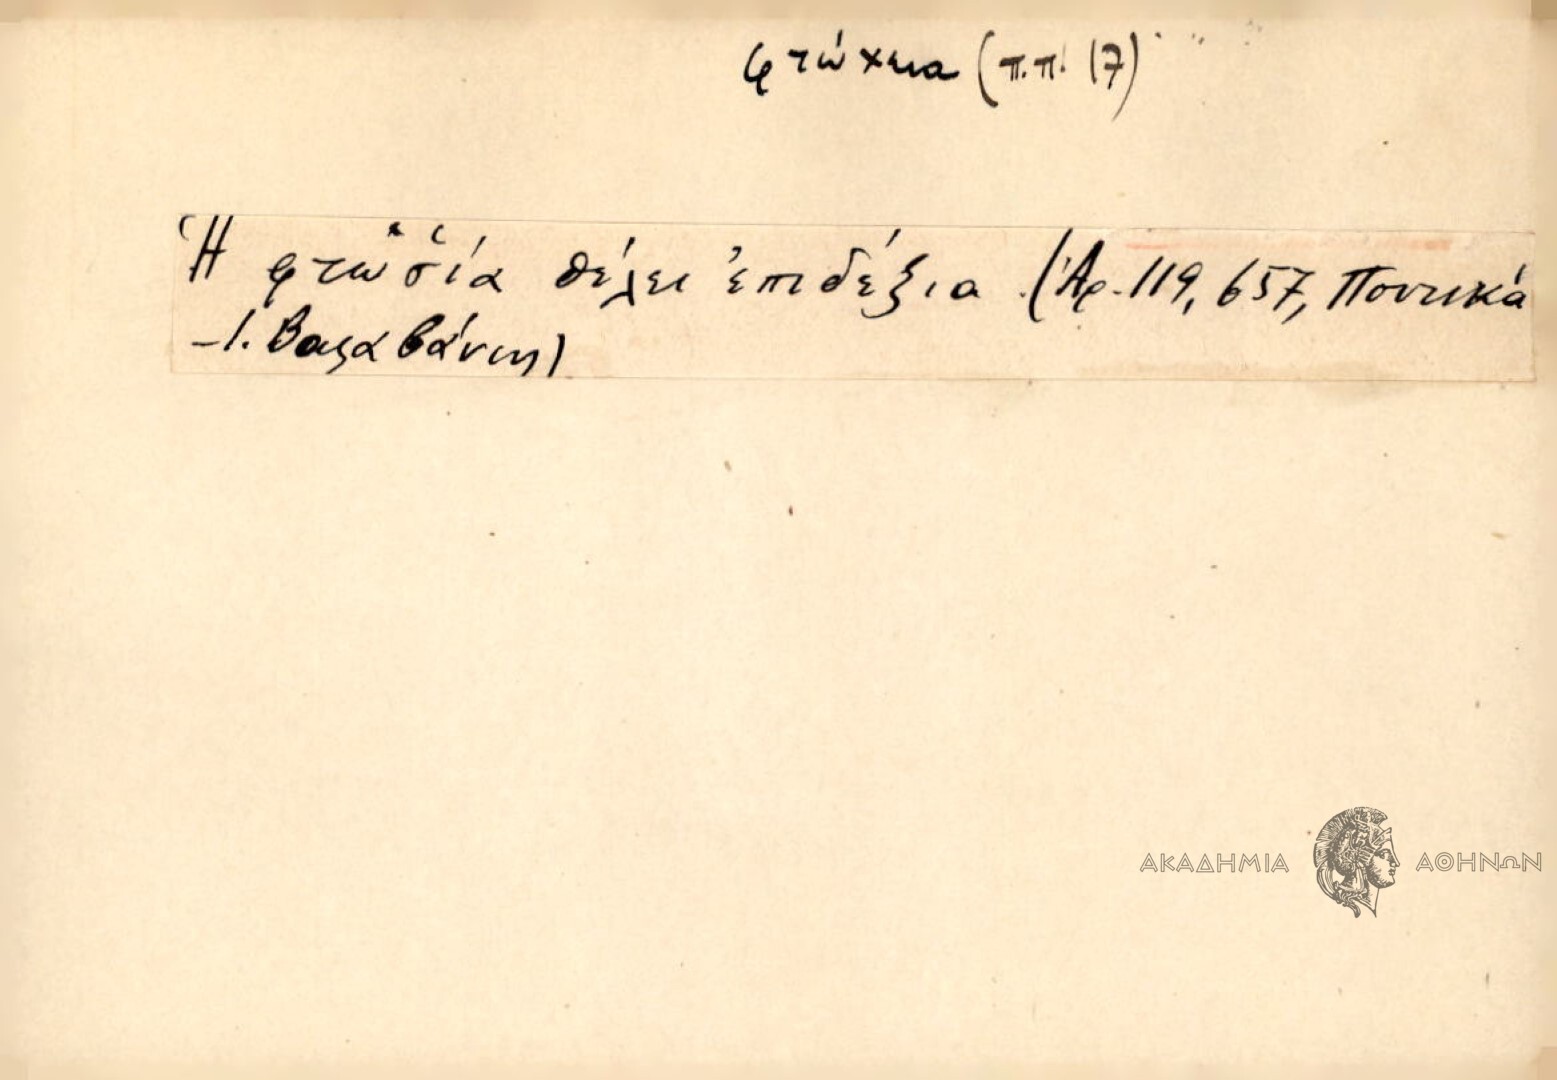 φτώχεια (π.π. 17)
Ἡ φτωσ̌ία θέλει ἐπιδέξια (Ἀρ. 119, 657, Ποντικά
– Ι. Βαλαβάνης)
ΑΚΑΔΗΜΙΑ ΑΘΗΝΩΝ